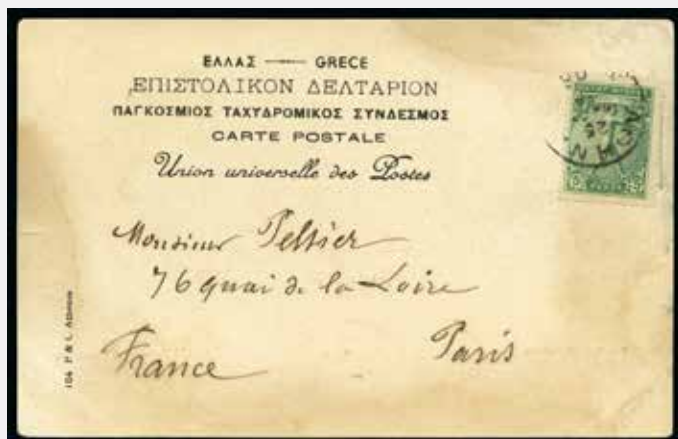 ΕΛΛΑΣ — GRECE
ΕΠΙΣΤΟΛΙΚΟΝ ΔΕΛΤΑΡΙΟΝ
ΠΑΓΚΟΣΜΙΟΣ ΤΑΧΥΔΡΟΜΙΚΟΣ ΣΥΝΔΕΣΜΟΣ
CARTE POSTALE
Union universelle des Postes
Monsieur Peltier
76 quai de la Loire
Paris
France